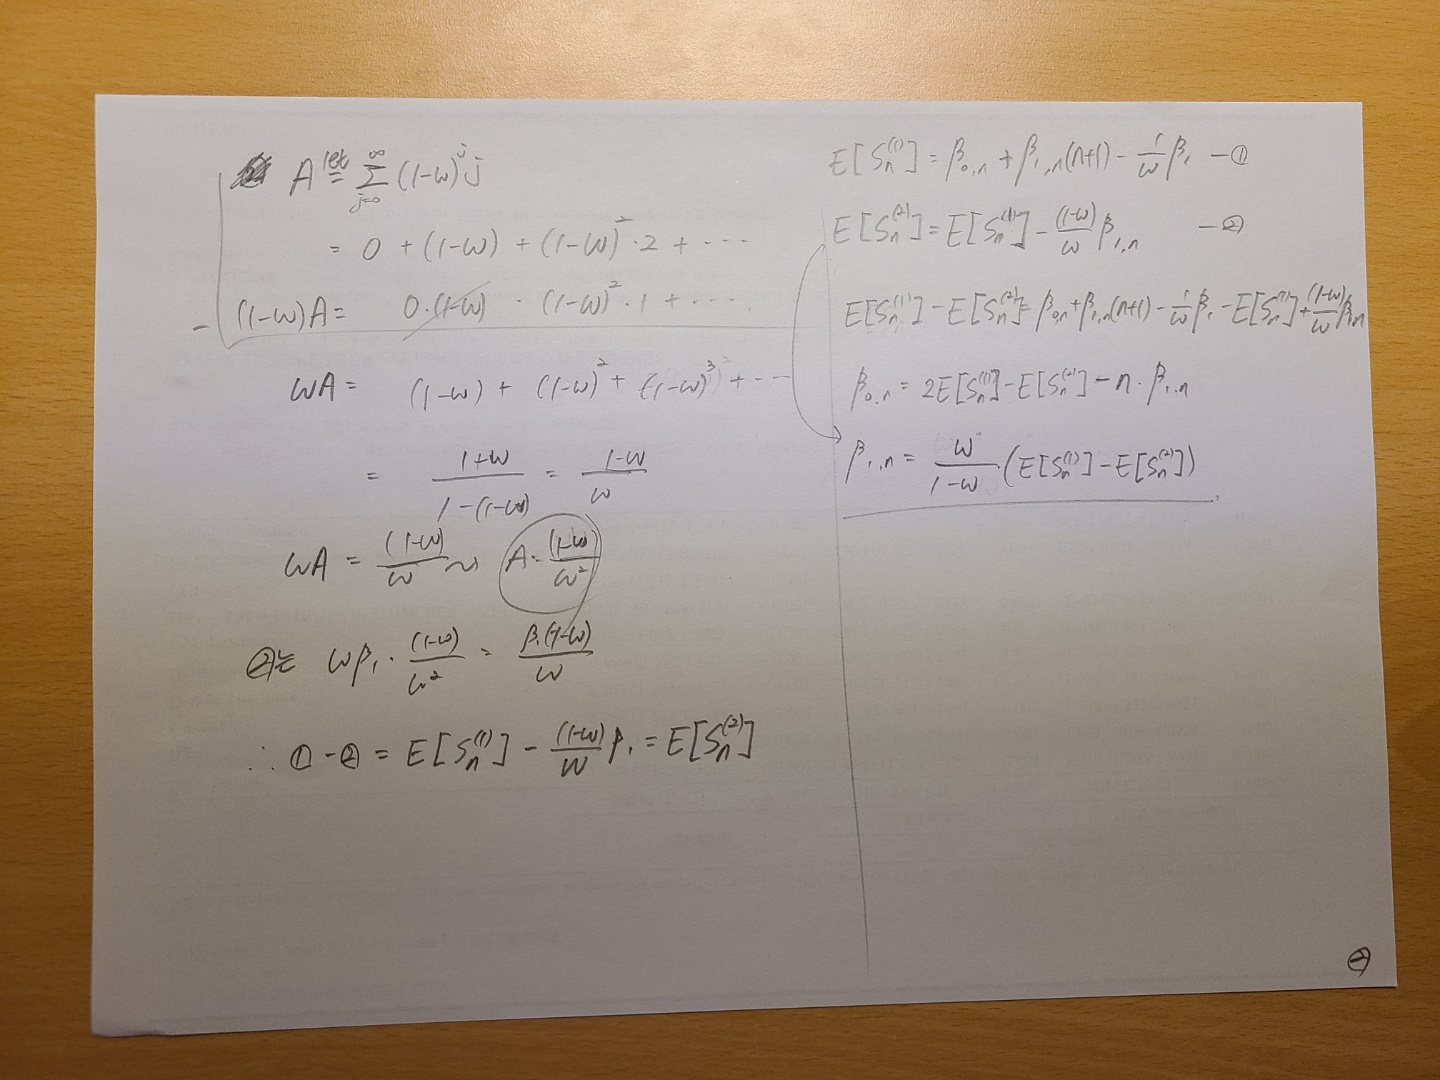 A \overset{let}{=} \sum_{j=0}^{∞} (1-ω)^j j
= 0 + (1-ω) + (1-ω)^2 · 2 + ···
- (1-ω)A = 0·(1-ω) · (1-ω)^2 · 1 + ···
ωA = (1-ω) + (1-ω)^2 + (1-ω)^3 + ···
= \frac{1+ω}{1-(1-ω)} = \frac{1-ω}{ω}
ωA = \frac{(1-ω)}{ω} ~> A = \frac{(1-ω)}{ω^2}
②는 ωβ_1 · \frac{(1-ω)}{ω^2} = \frac{β_1(1-ω)}{ω}
∴ ① - ② = E[S_n^{(1)}] - \frac{(1-ω)}{ω} β_1 = E[S_n^{(2)}]
E[S_n^{(1)}] = β_{0,n} + β_{1,n}(n+1) - \frac{1}{ω} β_1 - ①
E[S_n^{(2)}] = E[S_n^{(1)}] - \frac{(1-ω)}{ω} β_{1,n} - ②
E[S_n^{(1)}] - E[S_n^{(2)}] = β_{0,n} + β_{1,n}(n+1) - \frac{1}{ω} β_1 - E[S_n^{(1)}] + \frac{(1-ω)}{ω} β_{1,n}
β_{0,n} = 2E[S_n^{(1)}] - E[S_n^{(2)}] - n · β_{1,n}
β_{1,n} = \frac{ω}{1-ω} (E[S_n^{(1)}] - E[S_n^{(2)}])
②